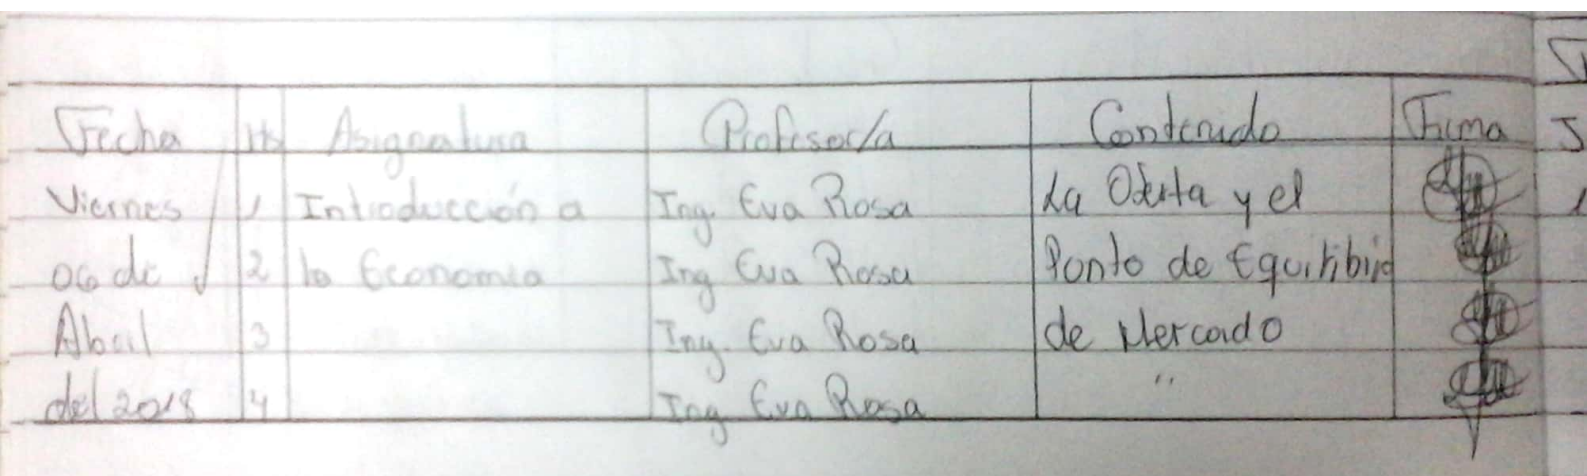 Fecha Hs Asignatura Profesor/a Contenido Firma
Viernes 1 Introducción a Ing. Eva Rosa La Oferta y el
06 de 2 la Economia Ing Eva Rosa Punto de Equilibrio
Abril 3 Ing. Eva Rosa de Mercado
del 2018 4 Ing Eva Rosa "